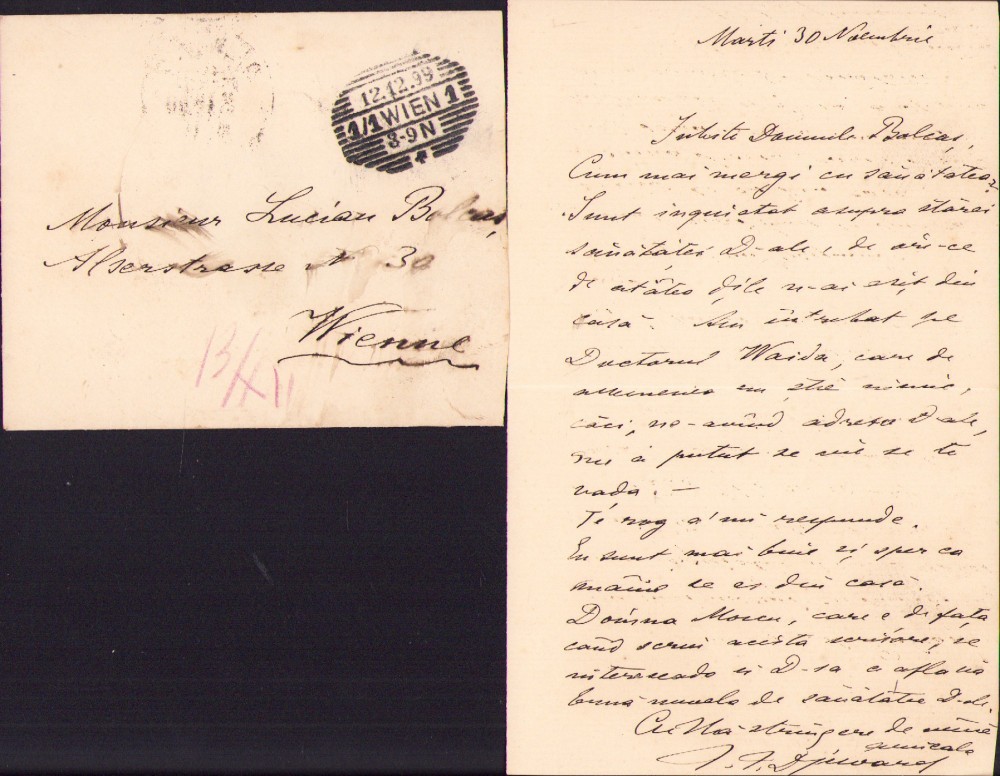 12.12.99
1/1 WIEN 1
8-9 N
Monsieur Lucian Bolcaș,
Alserstrasse No 30
Wienne
13/XII
Marti 30 Noembrie
Iubite Domnule Bolcaș,
Cum mai mergi cu sănătatea?
Sunt inquietat asupra stărei
sănătăței D-ale, de óre-ce
de atâtea ḍile n-ai eșit din
casă. Am întrebat pe
Doctorul Vaida, care de
asemenea nu știe nimic,
căci, ne-având adresa D-ale,
nu a putut se vie se te
vada. —
Te rog a'mi respunde.
Eu sunt mai bine și sper ca
mâine se es din casă.
Dómna Mocsu, care e de fața
când scriu acésta scrisóre, se
interesează și D-sa a afla
bună nuvela de sănătatea D-ale.
Cu strîngere de mână
amicala
T. Djuvara